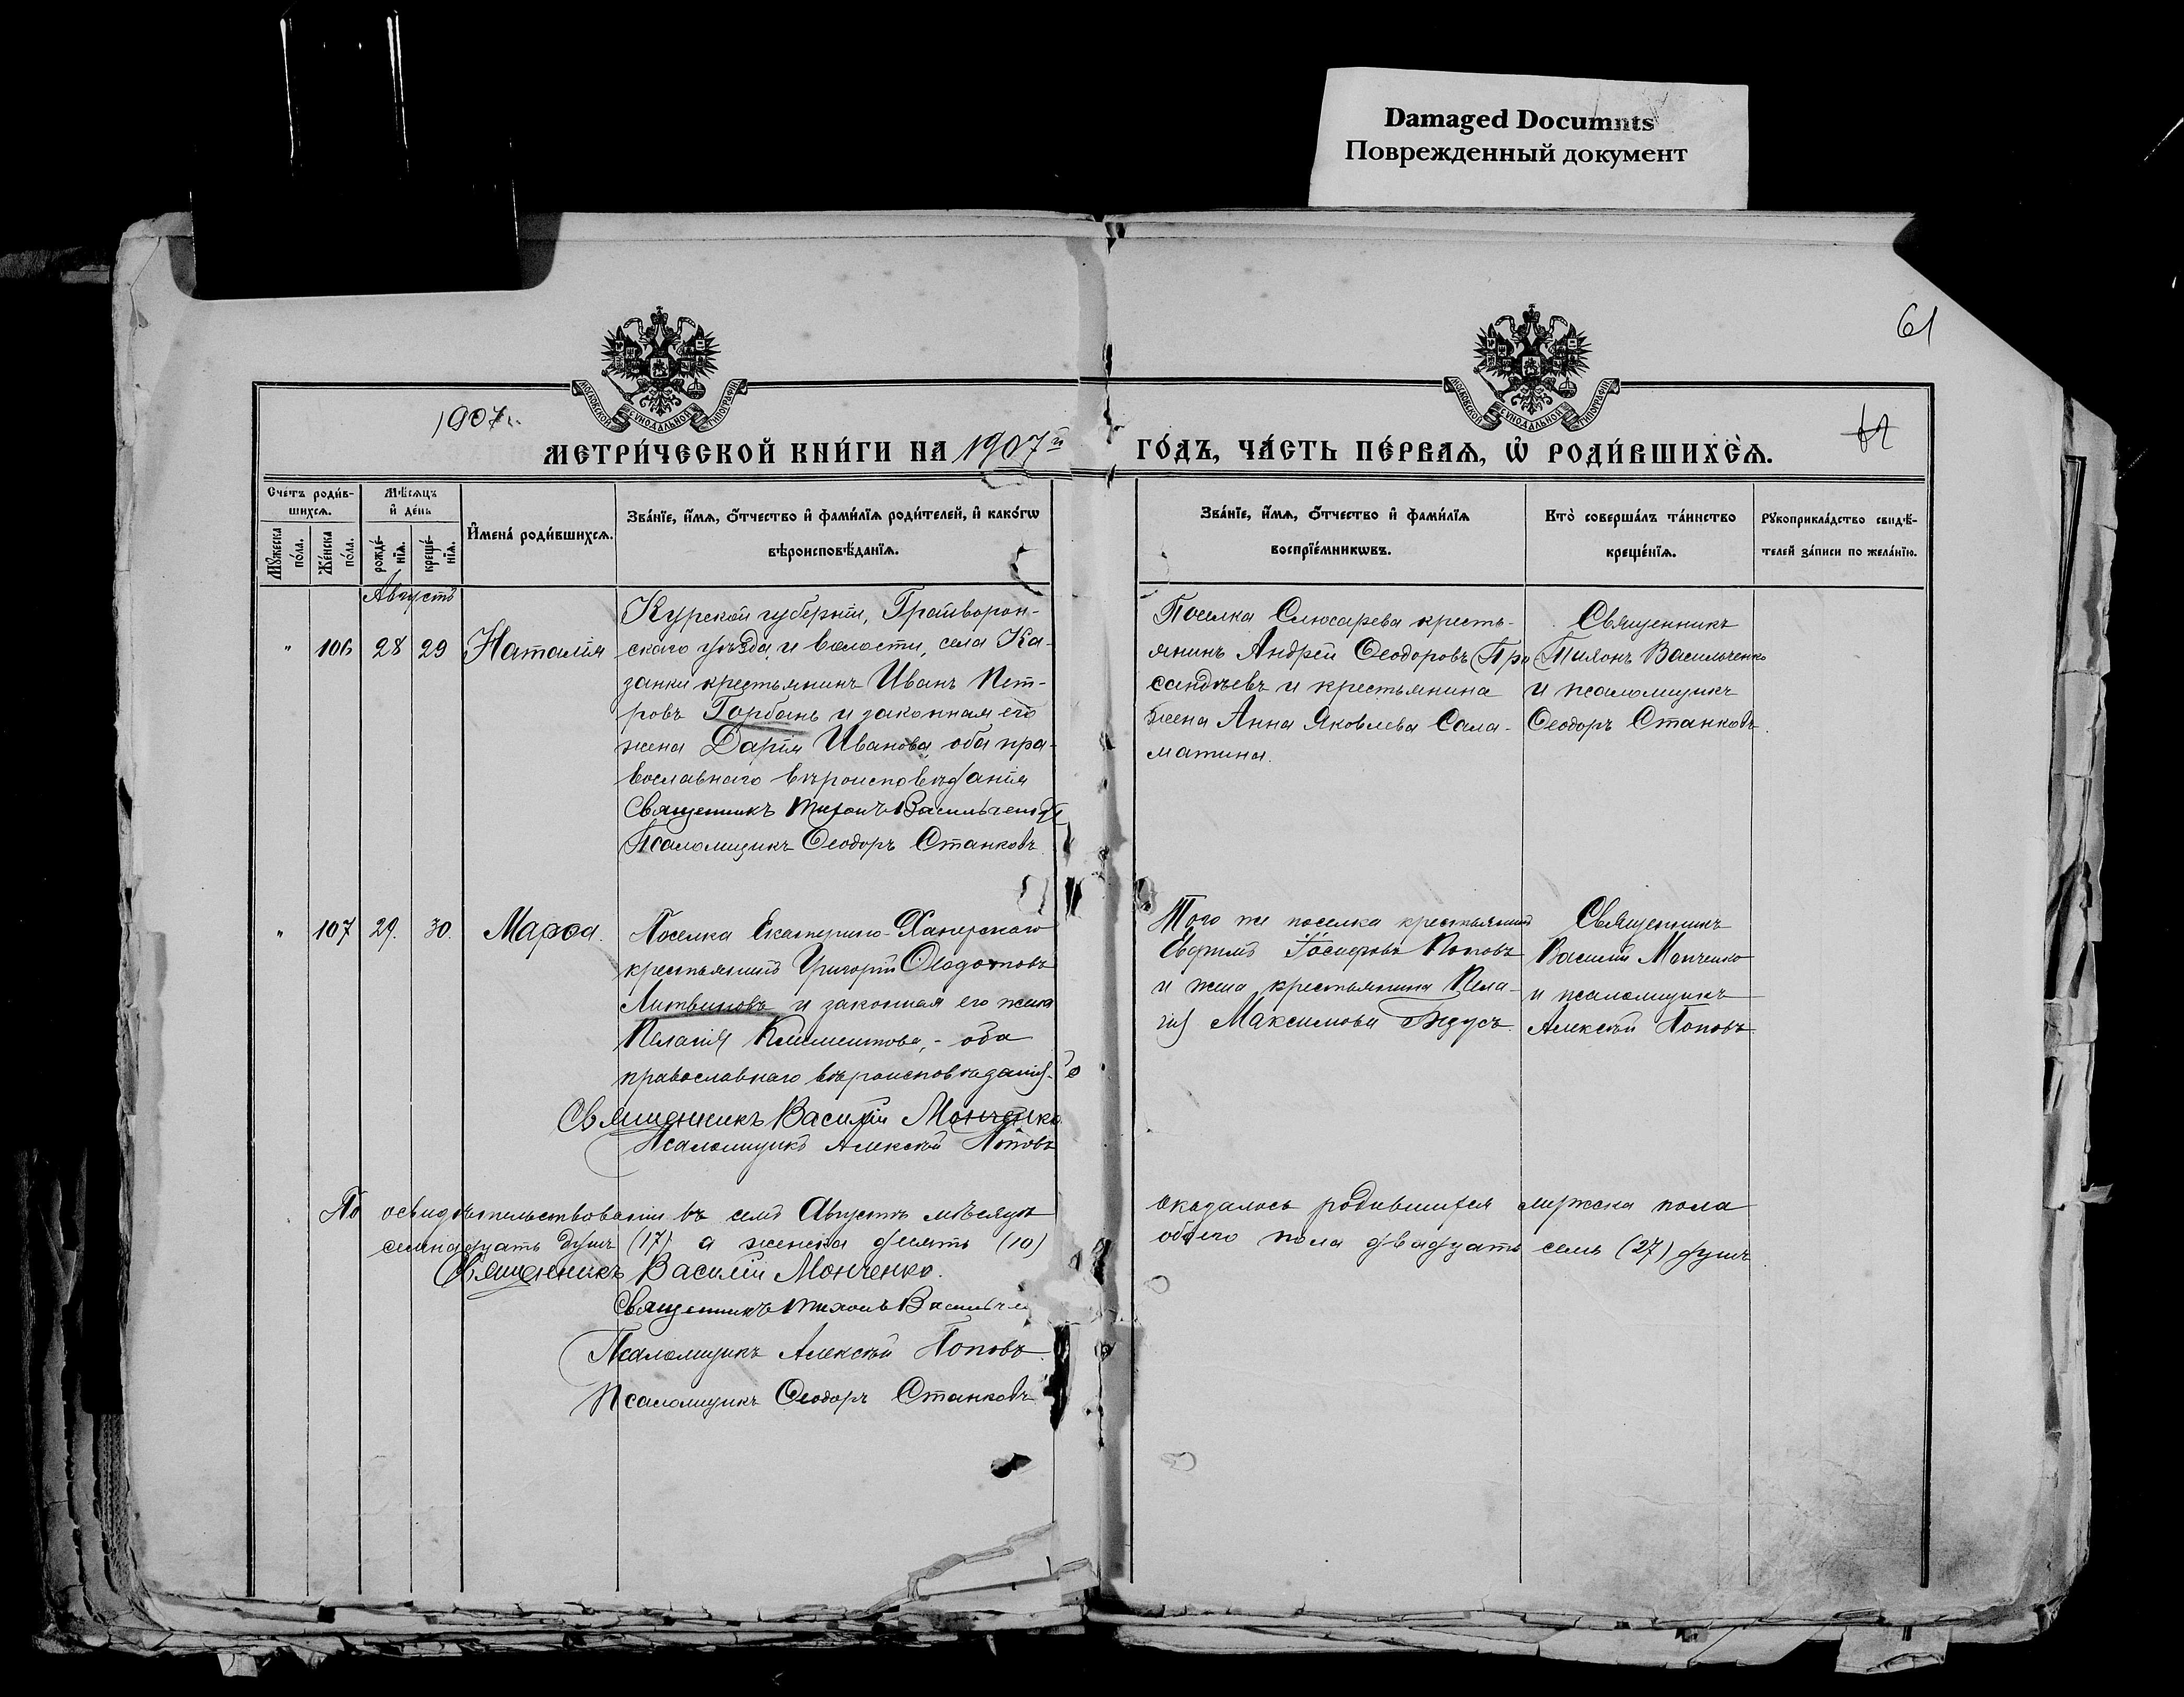 Damaged Documnts
Поврежденный документ
61
МОСКОВСКОЙ СУНОДАЛЬНОЙ ТИПОГРАФІИ
МОСКОВСКОЙ СУНОДАЛЬНОЙ ТИПОГРАФІИ
1907г.
МЕТРИ́ЧЕСКОЙ КНИ́ГИ НА 1907й ГО́ДЪ, ЧА́СТЬ ПЕ́РВАѦ, Ѡ҆ РОДИ́ВШИХСѦ.
Сче́тъ роди́в-
шихсѧ.
Мѣ́сѧцъ
и҆ де́нь
Мꙋ́жеска
по́ла.
Же́нска
по́ла.
рожде́-
нїѧ.
креще́-
нїѧ.
И҆мена̀ роди́вшихсѧ.
Зва́нїе, и҆́мѧ, ѻ҆́тчество и҆ фами́лїѧ роди́телей, и҆ како́гѡ
вѣроисповѣ́данїѧ.
Зва́нїе, и҆́мѧ, ѻ҆́тчество и҆ фами́лїѧ
воспрїе́мникѡвъ.
Кто̀ соверша́лъ та́инство
креще́нїѧ.
Рꙋкоприкла́дство свидѣ́-
телей за́писи по жела́нїю.
Августъ
" 106 28 29 Наталія
Курской губерніи, Грайворон-
скаго уѣзда и волости, села Ка-
занки крестьянинъ Иванъ Пет-
ровъ Горбань и законная его
жена Дарія Иванова, оба пра-
вославнаго вѣроисповѣданія
Священникъ Тихонъ Васильченко
Псаломщикъ Ѳеодоръ Станковъ
Поселка Слюсарева кресть-
янинъ Андрей Ѳеодоровъ
и крестьянина
жена Анна Яковлева Сала-
матина.
Священникъ
Тихонъ Васильченко
и псаломщикъ
Ѳеодоръ Станковъ.
" 107 29. 30. Марѳа.
Поселка Екатерино-Хаперскаго
крестьянинъ Григорій Ѳедотовъ
Литвиновъ и законная его жена
Пелагія Климентова, - оба
православнаго вѣроисповѣданія.
Священникъ Василій Монченко
Псаломщикъ Алексѣй Поповъ
Того же поселка крестьянинъ
Евфимъ Іосифовъ Поповъ
и жена крестьянина Пела-
гія Максимова
Священникъ
Василій Монченко
и псаломщикъ
Алексѣй Поповъ.
По освидѣтельствованіи въ семъ Августѣ мѣсяцѣ оказалось родившихся мужска пола
семнадцать душъ (17) а женска десять (10) обоего пола двадцать семь (27) душъ.
Священникъ Василій Монченко.
Священникъ Тихонъ
Псаломщикъ Алексѣй Поповъ.
Псаломщикъ Ѳеодоръ Станковъ